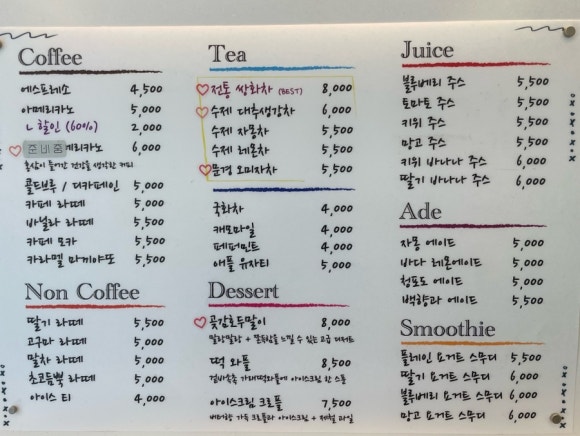 Coffee
에스프레소 4,500
아메리카노 5,000
ㄴ 할인 (60%) 2,000
준비중 메리카노 6,000
홍삼이 들어간 건강을 생각한 커피
콜드브루 / 디카페인 5,000
카페 라떼 5,000
바닐라 라떼 5,500
카페 모카 5,500
카라멜 마끼야또 5,500
Non Coffee
딸기 라떼 5,500
고구마 라떼 5,500
말차 라떼 5,500
초코듬뿍 라떼 5,500
아이스 티 4,000
Tea
전통 쌍화차 (BEST) 8,000
수제 대추생강차 6,000
수제 자몽차 5,500
수제 레몬차 5,500
문경 오미자차 5,500
국화차 4,000
캐모마일 4,000
페퍼민트 4,000
애플 유자티 5,000
Dessert
곶감호두말이 8,000
말랑말랑 + 호두맛을 느낄 수 있는 고급 디저트
떡 와플 8,500
겉바속촉 가래떡와플에 아이스크림 한 스푼
아이스크림 크로플 7,500
버터향 가득 크로플과 아이스크림 + 제철 과일
Juice
블루베리 주스 5,500
토마토 주스 5,500
키위 주스 5,500
망고 주스 5,500
키위 바나나 주스 6,000
딸기 바나나 주스 6,000
Ade
자몽 에이드 5,000
바다 레몬에이드 5,000
청포도 에이드 5,000
백향과 에이드 5,500
Smoothie
플레인 요거트 스무디 5,500
딸기 요거트 스무디 6,000
블루베리 요거트 스무디 6,000
망고 요거트 스무디 6,000